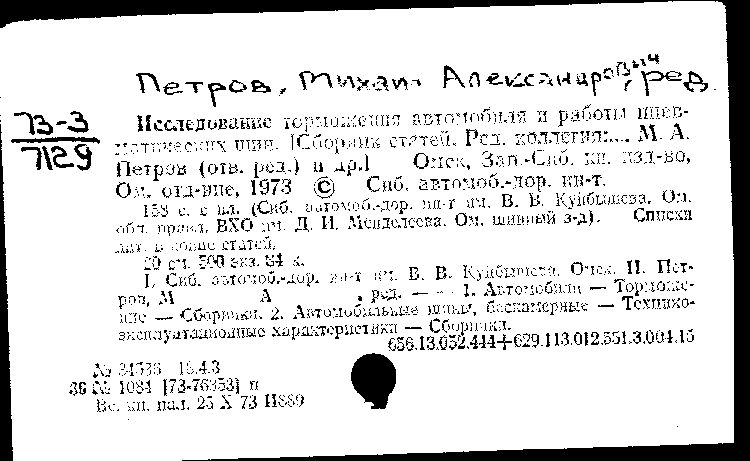 Петров, Михаил Александрович, ред.
73-3
7129
Исследование торможения автомобиля и работы пнев-
матических шин. [Сборник статей. Ред. коллегия:... М. А.
Петров (отв. ред.) и др.] Омск, Зап.-Сиб. кн. изд-во,
Ом. отд-ние, 1973 © Сиб. автомоб.-дор. ин-т.
158 с. с ил. (Сиб. автомоб.-дор. ин-т им. В. В. Куйбышева. Ом.
обл. правл. ВХО им. Д. И. Менделеева. Ом. шинный з-д). Списки
лит. в конце статей.
20 см. 500 экз. 84 к.
I. Сиб. автомоб.-дор. ин-т им. В. В. Куйбышева. Омск. II. Пет-
ров, М А , ред. — — 1. Автомобили — Торможе-
ние — Сборники. 2. Автомобильные шины, бескамерные — Технико-
эксплуатационные характеристики — Сборники.
656.13.052.444+629.113.012.551.3.004.15
№ 34536 15.4.3
36 № 1084 [73-76353] п
Вс. кн. пал. 25 X 73 Н889